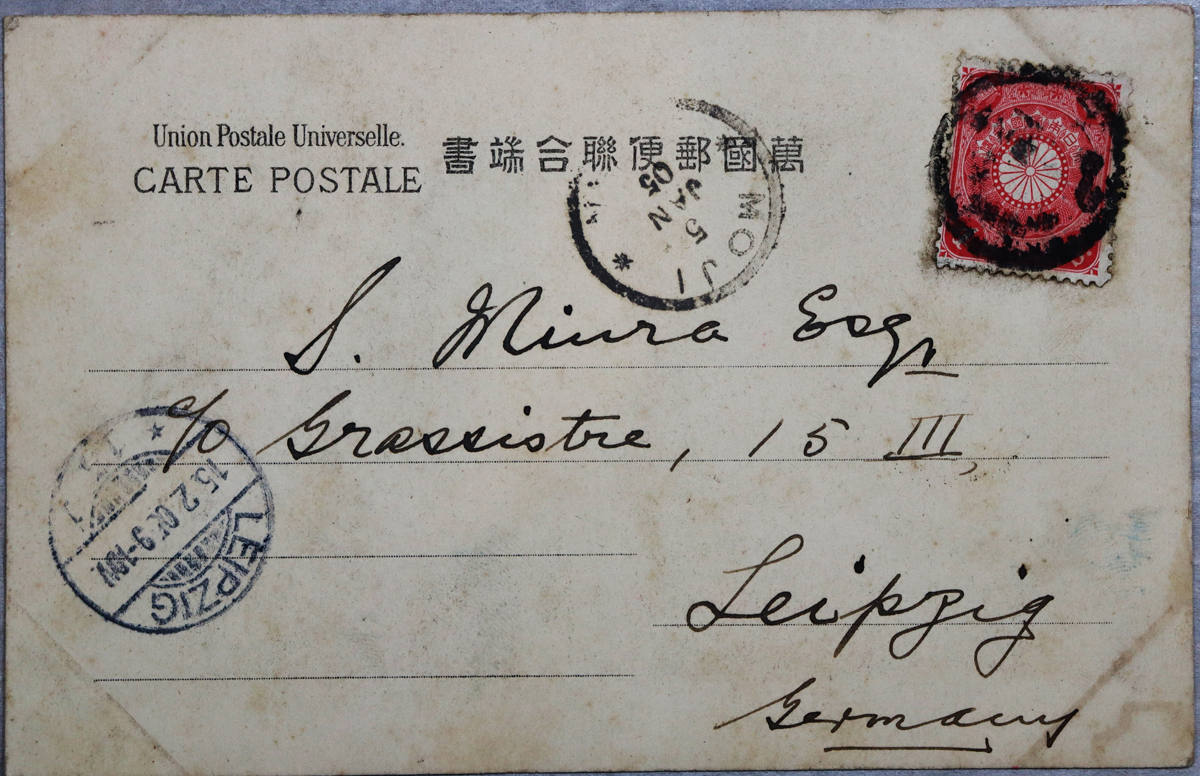 Union Postale Universelle.
CARTE POSTALE
書端合聯便郵國萬
MOJI
5
JAN
05
S. Miura Esq.
c/o Grassistre, 15 III,
Leipzig
Germany
LEIPZIG
15.2.05.9-10V